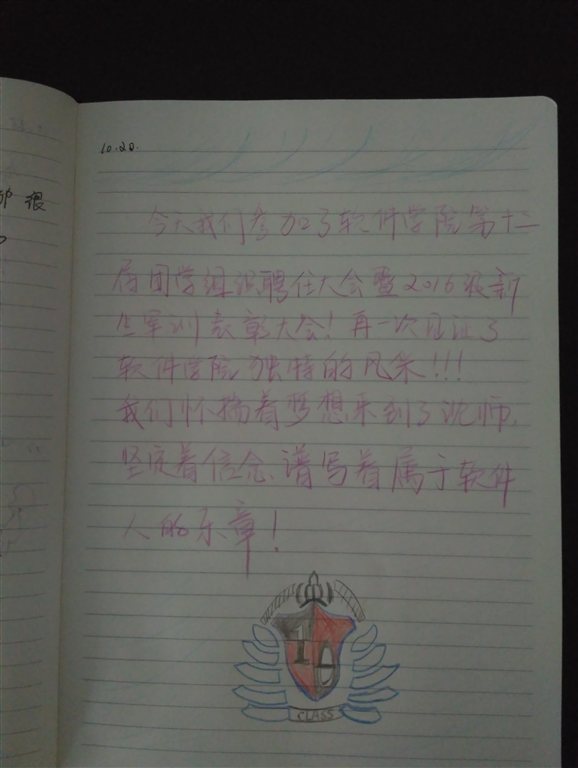 10.20.
今天我们参加了软件学院第十二
届团学组织聘任大会暨2016级新
生军训表彰大会!再一次见证了
软件学院独特的风采!!!
我们怀揣着梦想来到了沈师,
坚定着信念、谱写着属于软件
人的乐章!
很
10
CLASS